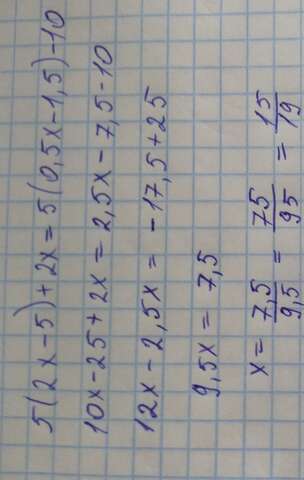 5(2x-5)+2x=5(0,5x-1,5)-10
10x-25+2x=2,5x-7,5-10
12x-2,5x=-17,5+25
9,5x=7,5
x=7,5/9,5=75/95=15/19